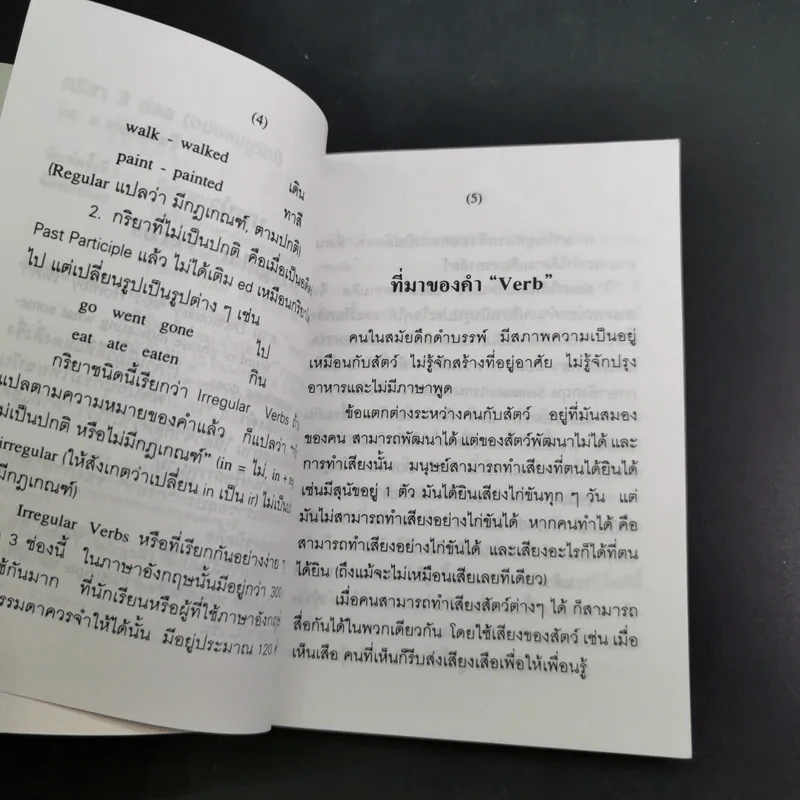 (4)
walk - walked เดิน
paint - painted ทาสี
(Regular แปลว่า มีกฎเกณฑ์, ตามปกติ)
2. กริยาที่ไม่เป็นปกติ คือเมื่อเป็นอดีต
Past Participle แล้ว ไม่ได้เติม ed เหมือนกริยา
ไป แต่เปลี่ยนรูปเป็นรูปต่าง ๆ เช่น
go went gone ไป
eat ate eaten กิน
กริยาชนิดนี้เรียกว่า Irregular Verbs
แปลตามความหมายของคำแล้ว ก็แปลว่า
ไม่เป็นปกติ หรือไม่มีกฎเกณฑ์" (in = ไม่, in +
irregular (ให้สังเกตว่าเปลี่ยน in เป็น ir) ไม่เป็น
มีกฎเกณฑ์)
Irregular Verbs หรือที่เรียกกันอย่างง่าย ๆ
3 ช่องนี้ ในภาษาอังกฤษนั้นมีอยู่กว่า 300
ใช้กันมาก ที่นักเรียนหรือผู้ที่ใช้ภาษาอังกฤษ
ธรรมดาควรจำให้ได้นั้น มีอยู่ประมาณ 120
(5)
ที่มาของคำ "Verb"
คนในสมัยดึกดำบรรพ์ มีสภาพความเป็นอยู่
เหมือนกับสัตว์ ไม่รู้จักสร้างที่อยู่อาศัย ไม่รู้จักปรุง
อาหารและไม่มีภาษาพูด
ข้อแตกต่างระหว่างคนกับสัตว์ อยู่ที่มันสมอง
ของคน สามารถพัฒนาได้ แต่ของสัตว์พัฒนาไม่ได้ และ
การทำเสียงนั้น มนุษย์สามารถทำเสียงที่ตนได้ยินได้
เช่นมีสุนัขอยู่ 1 ตัว มันได้ยินเสียงไก่ขันทุก ๆ วัน แต่
มันไม่สามารถทำเสียงอย่างไก่ขันได้ หากคนทำได้ คือ
สามารถทำเสียงอย่างไก่ขันได้ และเสียงอะไรก็ได้ที่ตน
ได้ยิน (ถึงแม้จะไม่เหมือนเสียเลยทีเดียว)
เมื่อคนสามารถทำเสียงสัตว์ต่างๆ ได้ ก็สามารถ
สื่อกันได้ในพวกเดียวกัน โดยใช้เสียงของสัตว์ เช่น เมื่อ
เห็นเสือ คนที่เห็นก็รีบส่งเสียงเสือเพื่อให้เพื่อนรู้